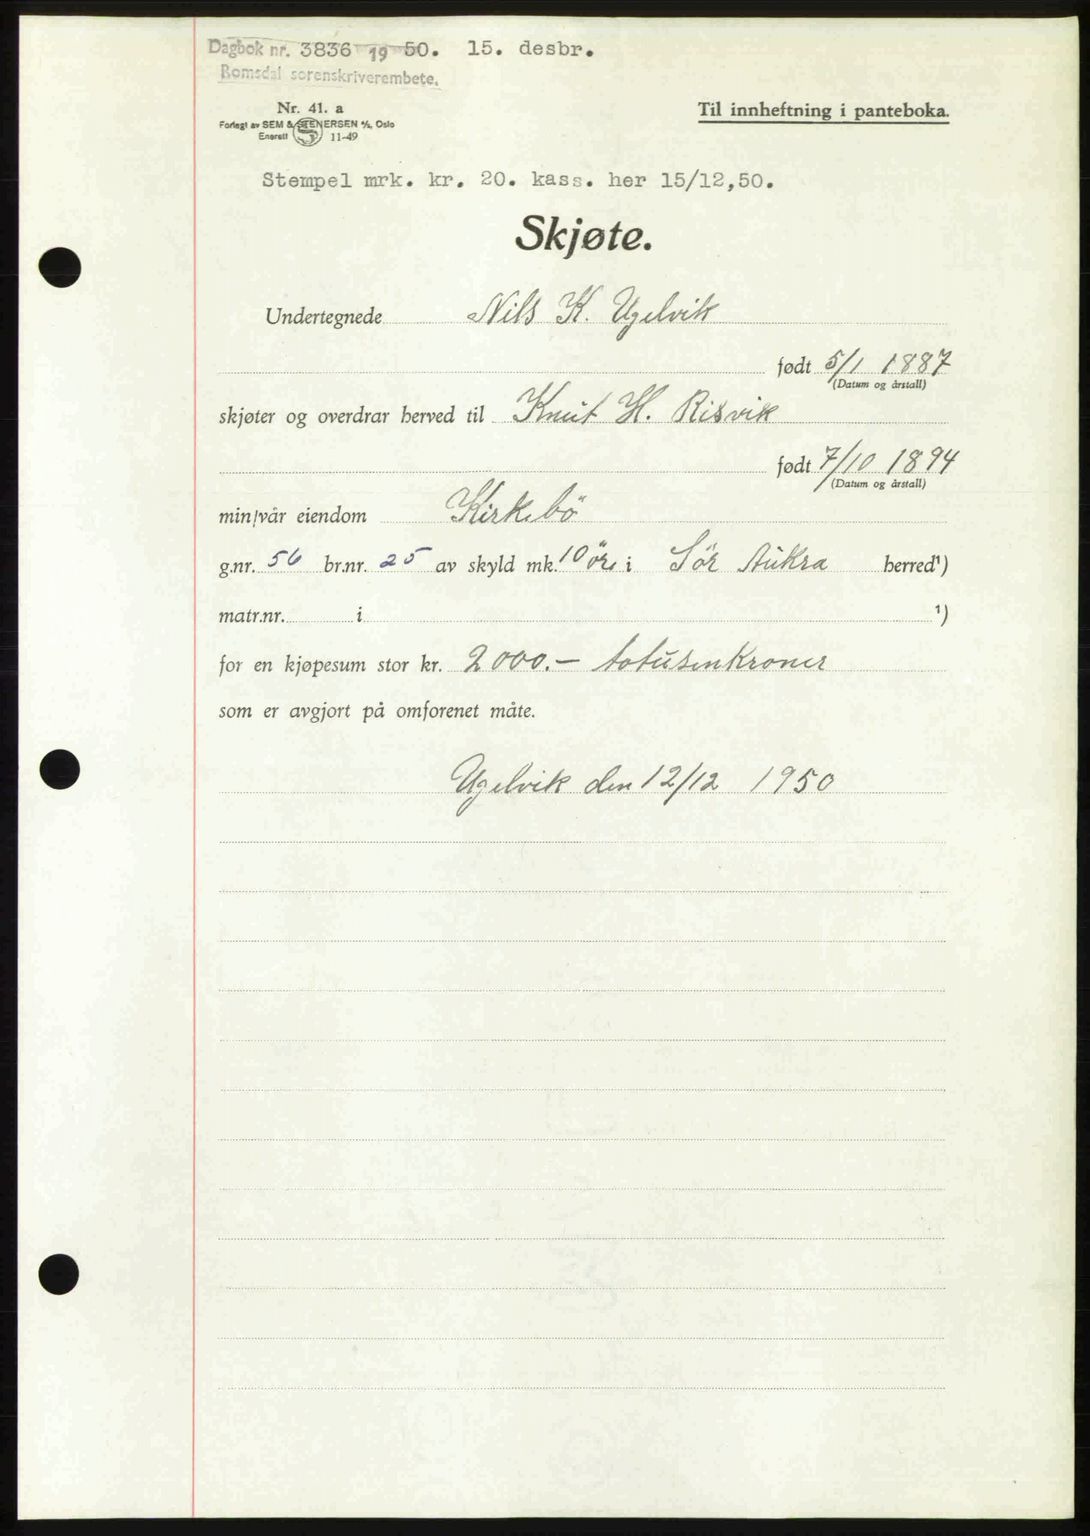 Dagbok nr. 3836 19 50. 15. desbr.
Romsdal sorenskriverembete.
Nr. 41. a
Forlagt av SEM & STENERSEN A/S, Oslo
Enerett 11-49
Til innheftning i panteboka.
Stempel mrk. kr. 20. kass. her 15/12,50.
Skjøte.
Undertegnede Nils K. Ugelvik
født 5/1 1887
(Datum og årstall)
skjøter og overdrar herved til Knut H. Risvik
født 7/10 1894
(Datum og årstall)
min/vår eiendom Kirkebö
g.nr. 56 br.nr. 25 av skyld mk. 10 öre i Sör Aukra herred¹)
matr.nr. i ¹)
for en kjøpesum stor kr. 2000.- totusenkroner
som er avgjort på omforenet måte.
Ugelvik den 12/12 1950